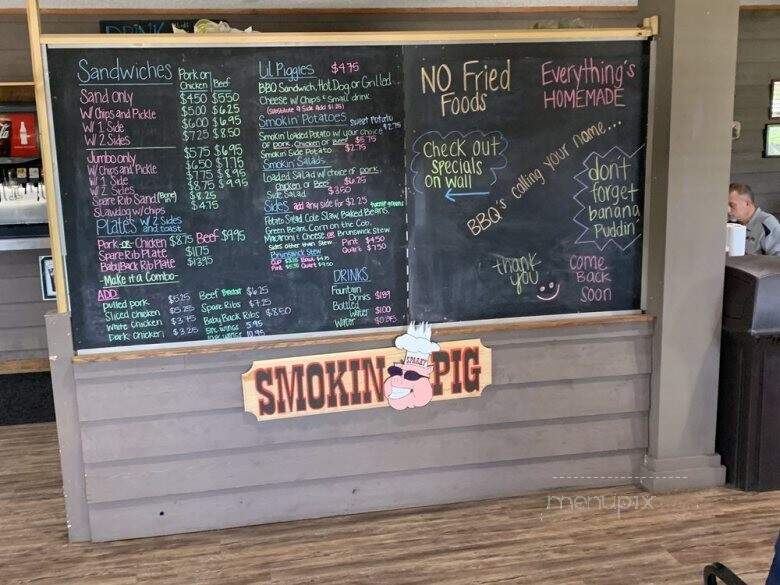 Sandwiches Pork or Chicken Beef
Sand only $4.50 $5.50
W/ Chips and Pickle $5.00 $6.25
W/ 1 Side $6.00 $6.95
W/ 2 Sides $7.25 $8.50
Jumbo only $5.75 $6.95
W/ Chips and Pickle $6.50 $7.75
W/ 1 Side $7.75 $8.95
W/ 2 Sides $8.75 $9.95
Spare Rib Sand (Bone) $8.25
Slawdog w/ Chips $4.75
Plates W/ 2 Sides and toast
Pork or Chicken $8.75 Beef $9.95
Spare Rib Plate $11.75
BabyBack Rib Plate $13.95
-Make it a Combo-
ADD
Pulled pork $5.25
Sliced chicken $5.25
White chicken $3.75
Dark chicken $3.25
Beef Brisket $6.25
Spare Ribs $7.25
Baby Back Ribs $8.50
5pc wings 5.95
10pc wings 10.95
Lil Piggies $4.75
BBQ Sandwich, Hot Dog, or Grilled
Cheese w/ Chips & Small drink
(Substitute a Side Add $1.25)
Smokin Potatoes
Sweet Potato $2.75
Smokin Loaded Potato w/ your choice
of pork, Chicken or Beef $5.75
Smokin Side Potato $2.75
Smokin Salads
Loaded Salad w/ choice of pork,
Chicken or Beef $6.25
Side Salad $3.50
Sides add any side for $2.25
Potato Salad, Cole Slaw, Baked Beans,
Green Beans, Corn on the Cob,
Macaroni & Cheese or Brunswick Stew
Sides other than Stew
Pint $4.50
Quart $7.50
Brunswick Stew
DRINKS
Fountain Drinks $1.99
Bottled Water $1.00
Water
NO Fried Foods
Everything's HOMEMADE
Check out specials on wall
BBQ's calling your name...
don't forget banana Puddin
thank you
Come Back Soon
SMOKIN PIG
menupix